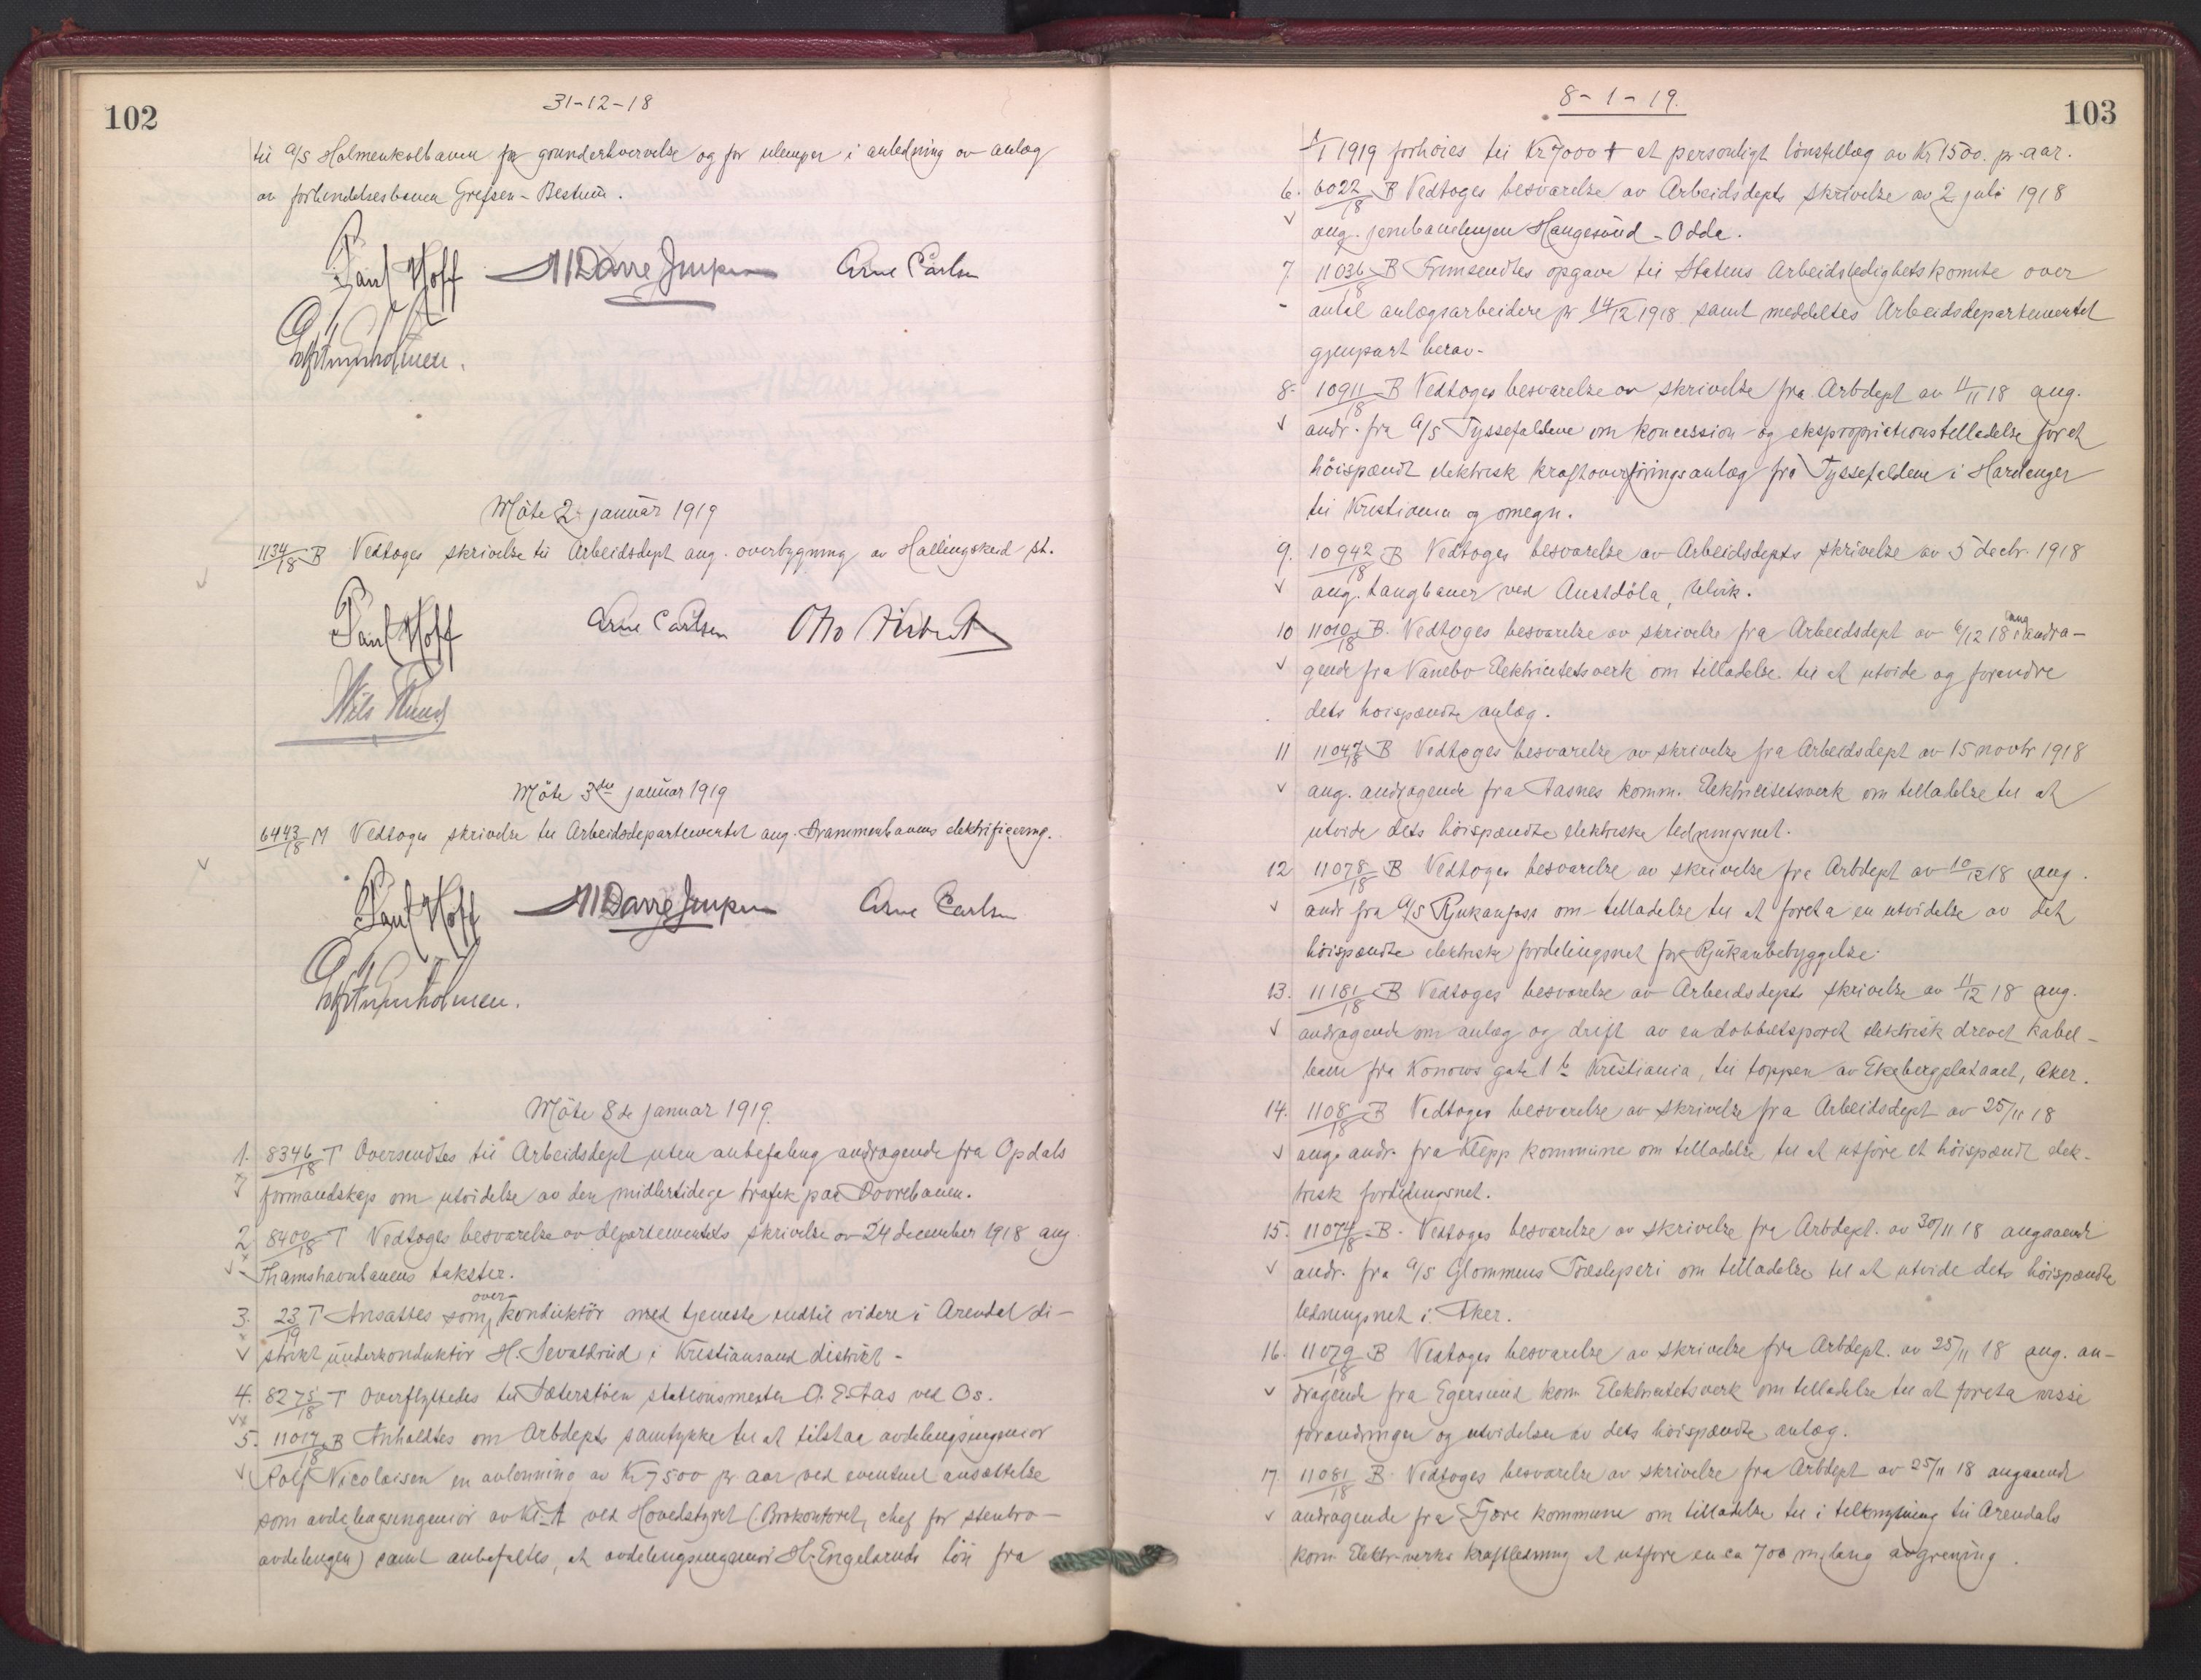 102
31-12-18
til A/S Holmenkolbanen for grunderhvervelse og for ulemper i anledning av anlæg
av forbindelsesbanen Grefsen-Bestum.
Paul Hoff Arne Carlsen
Möte 2 januar 1919
1134/18 B Vedtoges skrivelse til Arbeidsdept ang. overbygning av Hallingskeid st.
Paul Hoff Arne Carlsen Otto
Nils
Möte 3die januar 1919
6443/18 M Vedtoges skrivelse til Arbeidsdepartementet ang. Drammenbanens elektrificering.
Paul Hoff Arne Carlsen
Möte 8de januar 1919.
1. 8346/18 T Oversendtes til Arbeidsdept uten anbefaling andragende fra Opdals
formandskap om utvidelse av den midlertidige trafik paa Dovrebanen.
2. 8400/18 T Vedtoges besvarelse av departementets skrivelse av 24 december 1918 ang.
Thamshavnbanens takster.
3. 23/19 T Ansattes som over-konduktör med tjeneste indtil videre i Arendal di-
strikt underkonduktör H. Sevaldrud i Kristiansand distrikt -
4. 8275/18 T Overflyttedes til Sæterstöen stationsmester O. E. Aas ved Os.
5. 11017/18 B Anholdtes om Arbdepts samtykke til at tilstaa avdelingsingeniör
Rolf Nicolaisen en avlönning av Kr 7500 pr aar ved eventuel ansættelse
som avdelingsingeniör av Kl. A ved Hovedstyret (Brokontoret, chef for stenbro-
avdelingen) samt anbefaltes, at avdelingsingeniör H. Engelsruds lön fra
103
8-1-19.
1/1 1919 forhöies til Kr 7000 + et personligt lönstillæg av Kr 1500. pr. aar.
6. 6022/18 B Vedtoges besvarelse av Arbeidsdepts skrivelse av 2 juli 1918
ang. jernbanelinjen Haugesund - Odda.
7. 11036/18 B Fremsendtes opgave til Statens Arbeidsledighetskomite over
antal anlægsarbeidere pr 14/12 1918 samt meddeltes Arbeidsdepartementet
gjenpart herav-
8. 10911/18 B Vedtoges besvarelse av skrivelse fra Arbdept av 11/11 18 ang.
andr. fra A/S Tyssefaldene om koncession og ekspropriationstilladelse for et
höispændt elektrisk kraftoverföringsanlæg fra Tyssefaldene i Hardanger
til Kristiania og omegn.
9. 10942/18 B Vedtoges besvarelse av Arbeidsdepts skrivelse av 5 decbr. 1918
ang. taugbaner ved Austdöla, Ulvik.
10 11010/18 B. Vedtoges besvarelse av skrivelse fra Arbeidsdept av 6/12 18 ang andra-
gende fra Vanebo Elektricitetsverk om tilladelse til at utvide og forandre
dets höispændte anlæg.
11 11047/18 B Vedtoges besvarelse av skrivelse fra Arbeidsdept av 15 novbr 1918
ang. andragende fra Aasnes komm. Elektricitetsverk om tilladelse til at
utvide dets höispændte elektriske ledningsnet.
12 11078/18 B Vedtoges besvarelse av skrivelse fra Arbdept av 10/12 18 ang.
andr fra A/S Rjukanfoss om tilladelse til at foreta en utvidelse av det
höispændte elektriske fordelingsnet for Rjukanbebyggelse.
13. 11181/18 B Vedtoges besvarelse av Arbeidsdepts skrivelse av 11/12 18 ang.
andragende om anlæg og drift av en dobbeltsporet elektrisk drevet kabel-
bane fra Konows gate 1 b Kristiania, til toppen av Ekebergplataaet, Aker.
14. 1108/18 B Vedtoges besvarelse av skrivelse fra Arbeidsdept av 25/11 18
ang. andr. fra Klepp kommune om tilladelse til at utföre et höispændt elek-
trisk fordelingsnet.
15. 11074/18 B. Vedtoges besvarelse av skrivelse fra Arbdept. av 30/11 18 angaaende
andr. fra A/S Glommens Træsliperi om tilladelse til at utvide dets höispændte
ledningsnet i Aker.
16. 11079/18 B Vedtoges besvarelse av skrivelse fra Arbdept. av 25/11 18 ang. an-
dragende fra Egersund kom Elektricitetsverk om tilladelse til at foreta visse
forandringer og utvidelser av dets höispændte anlæg.
17. 11081/18 B. Vedtoges besvarelse av skrivelse fra Arbdept av 25/11 18 angaaende
andragende fra Fjære kommune om tilladelse til i tilknytning til Arendals
kom. Elektr-verks kraftledning at utföre en ca 700 m. lang avgrening.